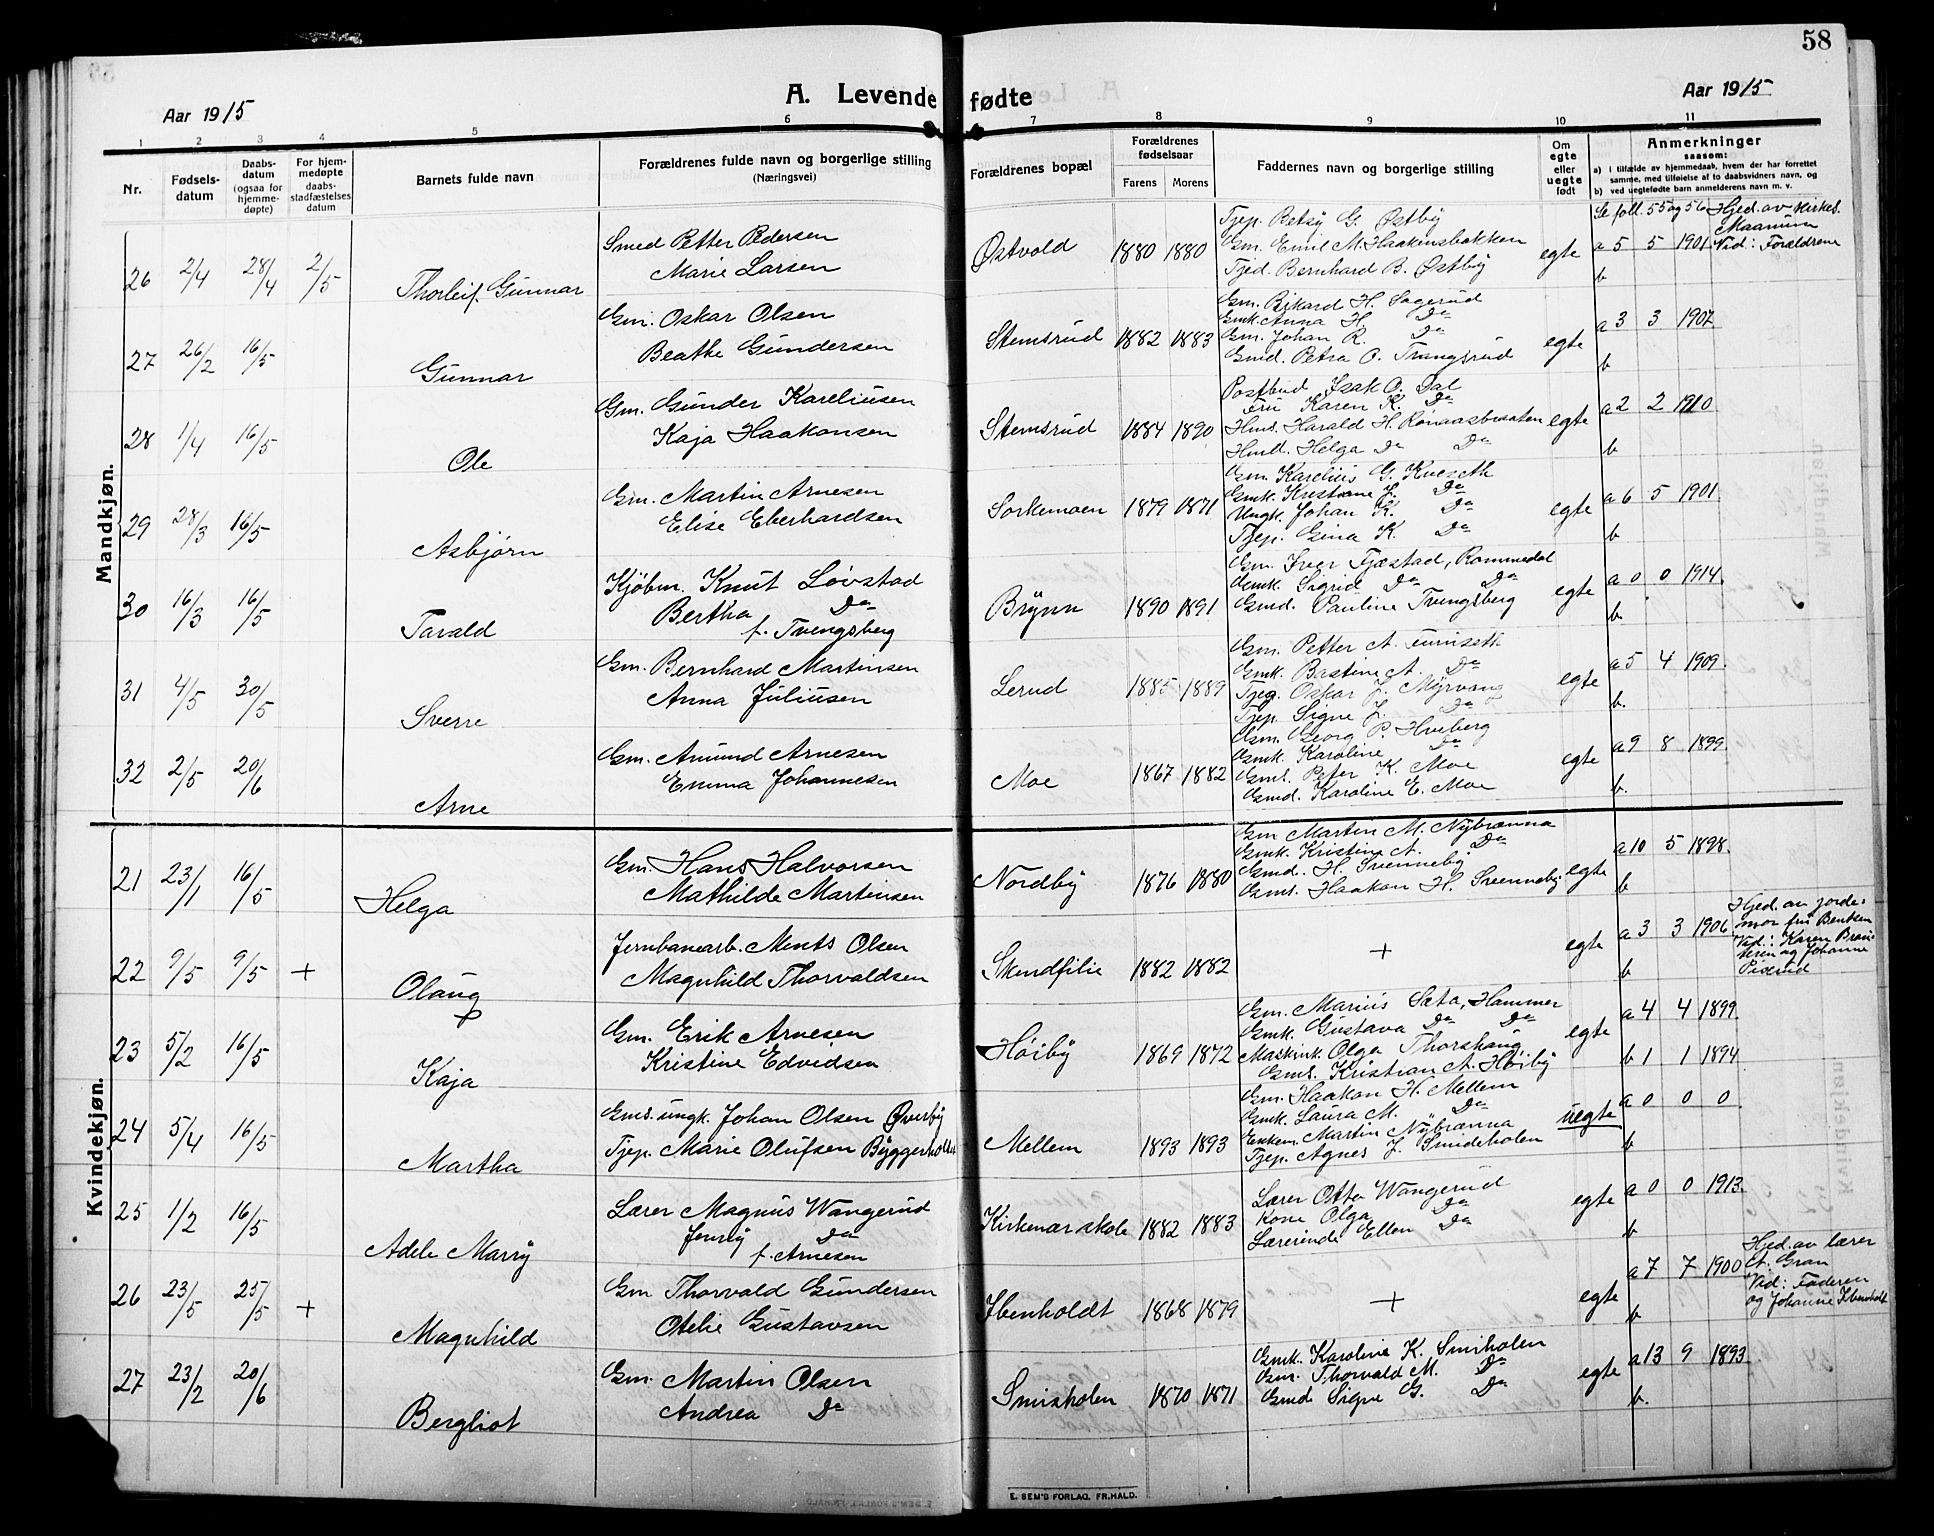 58
Aar 1915
A. Levende fødte
Aar 1915
1 2 3 4 5 6 7 8 9 10 11
Nr.
Fødsels-
datum
Daabs-
datum
(ogsaa for
hjemme-
døpte)
For hjem-
medøpte
daabs-
stadfæstelses
datum
Barnets fulde navn
Forældrenes fulde navn og borgerlige stilling
(Næringsvei)
Forældrenes bopæl
Forældrenes
fødselsaar
Farens Morens
Faddernes navn og borgerlige stilling
Om
egte
eller
uegte
født
Anmerkninger
saasom:
a) i tilfælde av hjemmedaab, hvem der har forrettet
samme, med tilføielse af to daabsvidners navn, og
b) ved uegtefødte barn anmelderens navn m. v.
Mandkjøn.
26 2/4 28/4 2/5
Thorleif Gunnar
Smed Petter Pedersen
Marie Larsen
Østvold 1880 1880
Tjep. Betsy G. Østby
Gm. Emil M. Haakinsbakken
Tjed. Bernhard B. Østby
egte
Se foll. 55 og 56
a 5 5 1901
b
Hjed. av Kirkes.
Maanum
Vid: Forældrene
27 26/2 16/5
Gunnar
Gm. Oskar Olsen
Beathe Gundersen
Stemsrud 1882 1883
Gm. Rikard H. Sagerud
Gmk. Anna H. Do
Gm. Johan R. Do
Gmd. Petra O. Trangsrud
egte
a 3 3 1907
b
28 1/4 16/5
Ole
Gm. Gunder Kareliusen
Kaja Haakonsen
Stemsrud 1884 1890
Postbud Isak O. Dal
Fru Karen K. Do
Hms. Harald H. Rønaasbraaten
Hmd. Helga Do Do
egte
a 2 2 1910
b
29 28/3 16/5
Asbjørn
Gm. Martin Arnesen
Elise Eberhardsen
Sorkemoen 1879 1871
Gm. Karelius G. Kveseth
Gmk. Kristiane J. Do
Ungk. Johan K. Do
Tjep. Gina K. Do
egte
a 6 5 1901
b
30 16/3 16/5
Tarald
Kjøbm. Knut Løvstad
Bertha Do
f. Tvengsberg
Brynn 1890 1891
Gm. Iver Tjæstad, Rommedal
Gmk. Sigrid Do Do
Gmd. Pauline Tvengsberg
egte
a 0 0 1914.
b.
31 4/5 30/5
Sverre
Gm. Bernhard Martinsen
Anna Juliusen
Lerud 1885 1889
Gm. Petter A. Furuseth
Gmk. Bastine A. Do
Tjeg. Oskar J. Myrvang
Tjep. Signe J. Do
egte
a 5 4 1909.
b.
32 2/5 20/6
Arne
Gm. Amund Arnesen
Emma Johannesen
Moe 1867 1882
Gm. Georg P. Huberg
Gmk. Karoline Do
Gms. Peter K. Moe
Gmd. Karoline E. Moe
egte
a 9 8 1899.
b.
Kvindekjøn.
21 23/1 16/5
Helga
Gm. Hans Halvorsen
Mathilde Martinsen
Nordby 1876 1880
Gm Martin M. Nybrænna
Gmk. Kristine A. Do
Gmd. H. Svenneby.
Gms. Haakon H. Svenneby.
egte
a 10 5 1898.
b
22 9/5 9/5 +
Olaug
Jernbanearb. Ments Olsen
Magnhild Thorvaldsen
Skendfilie 1882 1882
+
egte
a 3 3 1906.
b
Hjed. av jorde-
mor fru Bentsen
Vid.: Karen
og Johanne
23 5/2 16/5
Kaja
Gm. Erik Arnesen
Kristine Edvedsen
Høiby 1869 1872
Gm. Marius Sæta, Hammer
Gmk. Gustava Do Do
Maskink. Olga Thorshaug
Gms. Kristian A. Høiby
egte
a 4 4 1899.
b 1 1 1894
24 5/4 16/5
Martha
Gms. ungk. Johan Olsen Øverby
Tjep. Marie Olufsen Byggerholen
Mellem 1893 1893
Gm. Haakon H. Mellem
Gmk. Laura M. Do
Enkem. Martin Nybrænna
Tjep. Agnes J. Smideholen
uegte
a 0 0 0
b
25 1/2 16/5
Adele Marry
Lærer Magnus Wangerud
Jenny Do
f. Arnesen
Kirkenær skole 1882 1883
Lærer Otto Wangerud
Kone Olga Do
Lærerinde Ellen Do
egte
a 0 0 1913.
b
26 23/5 25/5 +
Magnhild
Gm Thorvald Gundersen
Otelie Gustavsen
Ibenholdt 1868 1879
+
egte
a 7 7 1900
b
Hjed. av lærer
A. Gran
Vid: Faderen
og Johanne Ibenholdt
27 23/2 20/6
Bergliot
Gm. Martin Olsen
Andrea Do
Smisholen 1870 1871
Gmk. Karoline K. Smiholen
Gm. Thorvald M. Do
Gmd. Signe G. Do
egte
a 13 9 1893
b.
E. SEM'S FORLAG. FR.HALD.